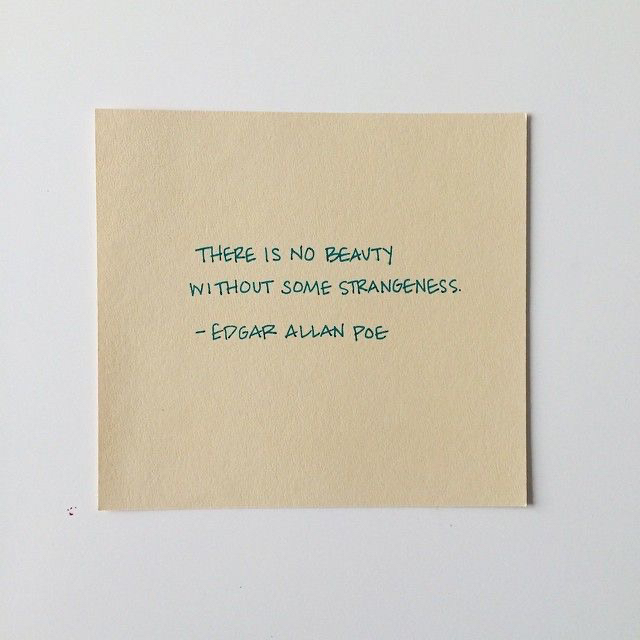 THERE IS NO BEAUTY
WITHOUT SOME STRANGENESS.
- EDGAR ALLAN POE